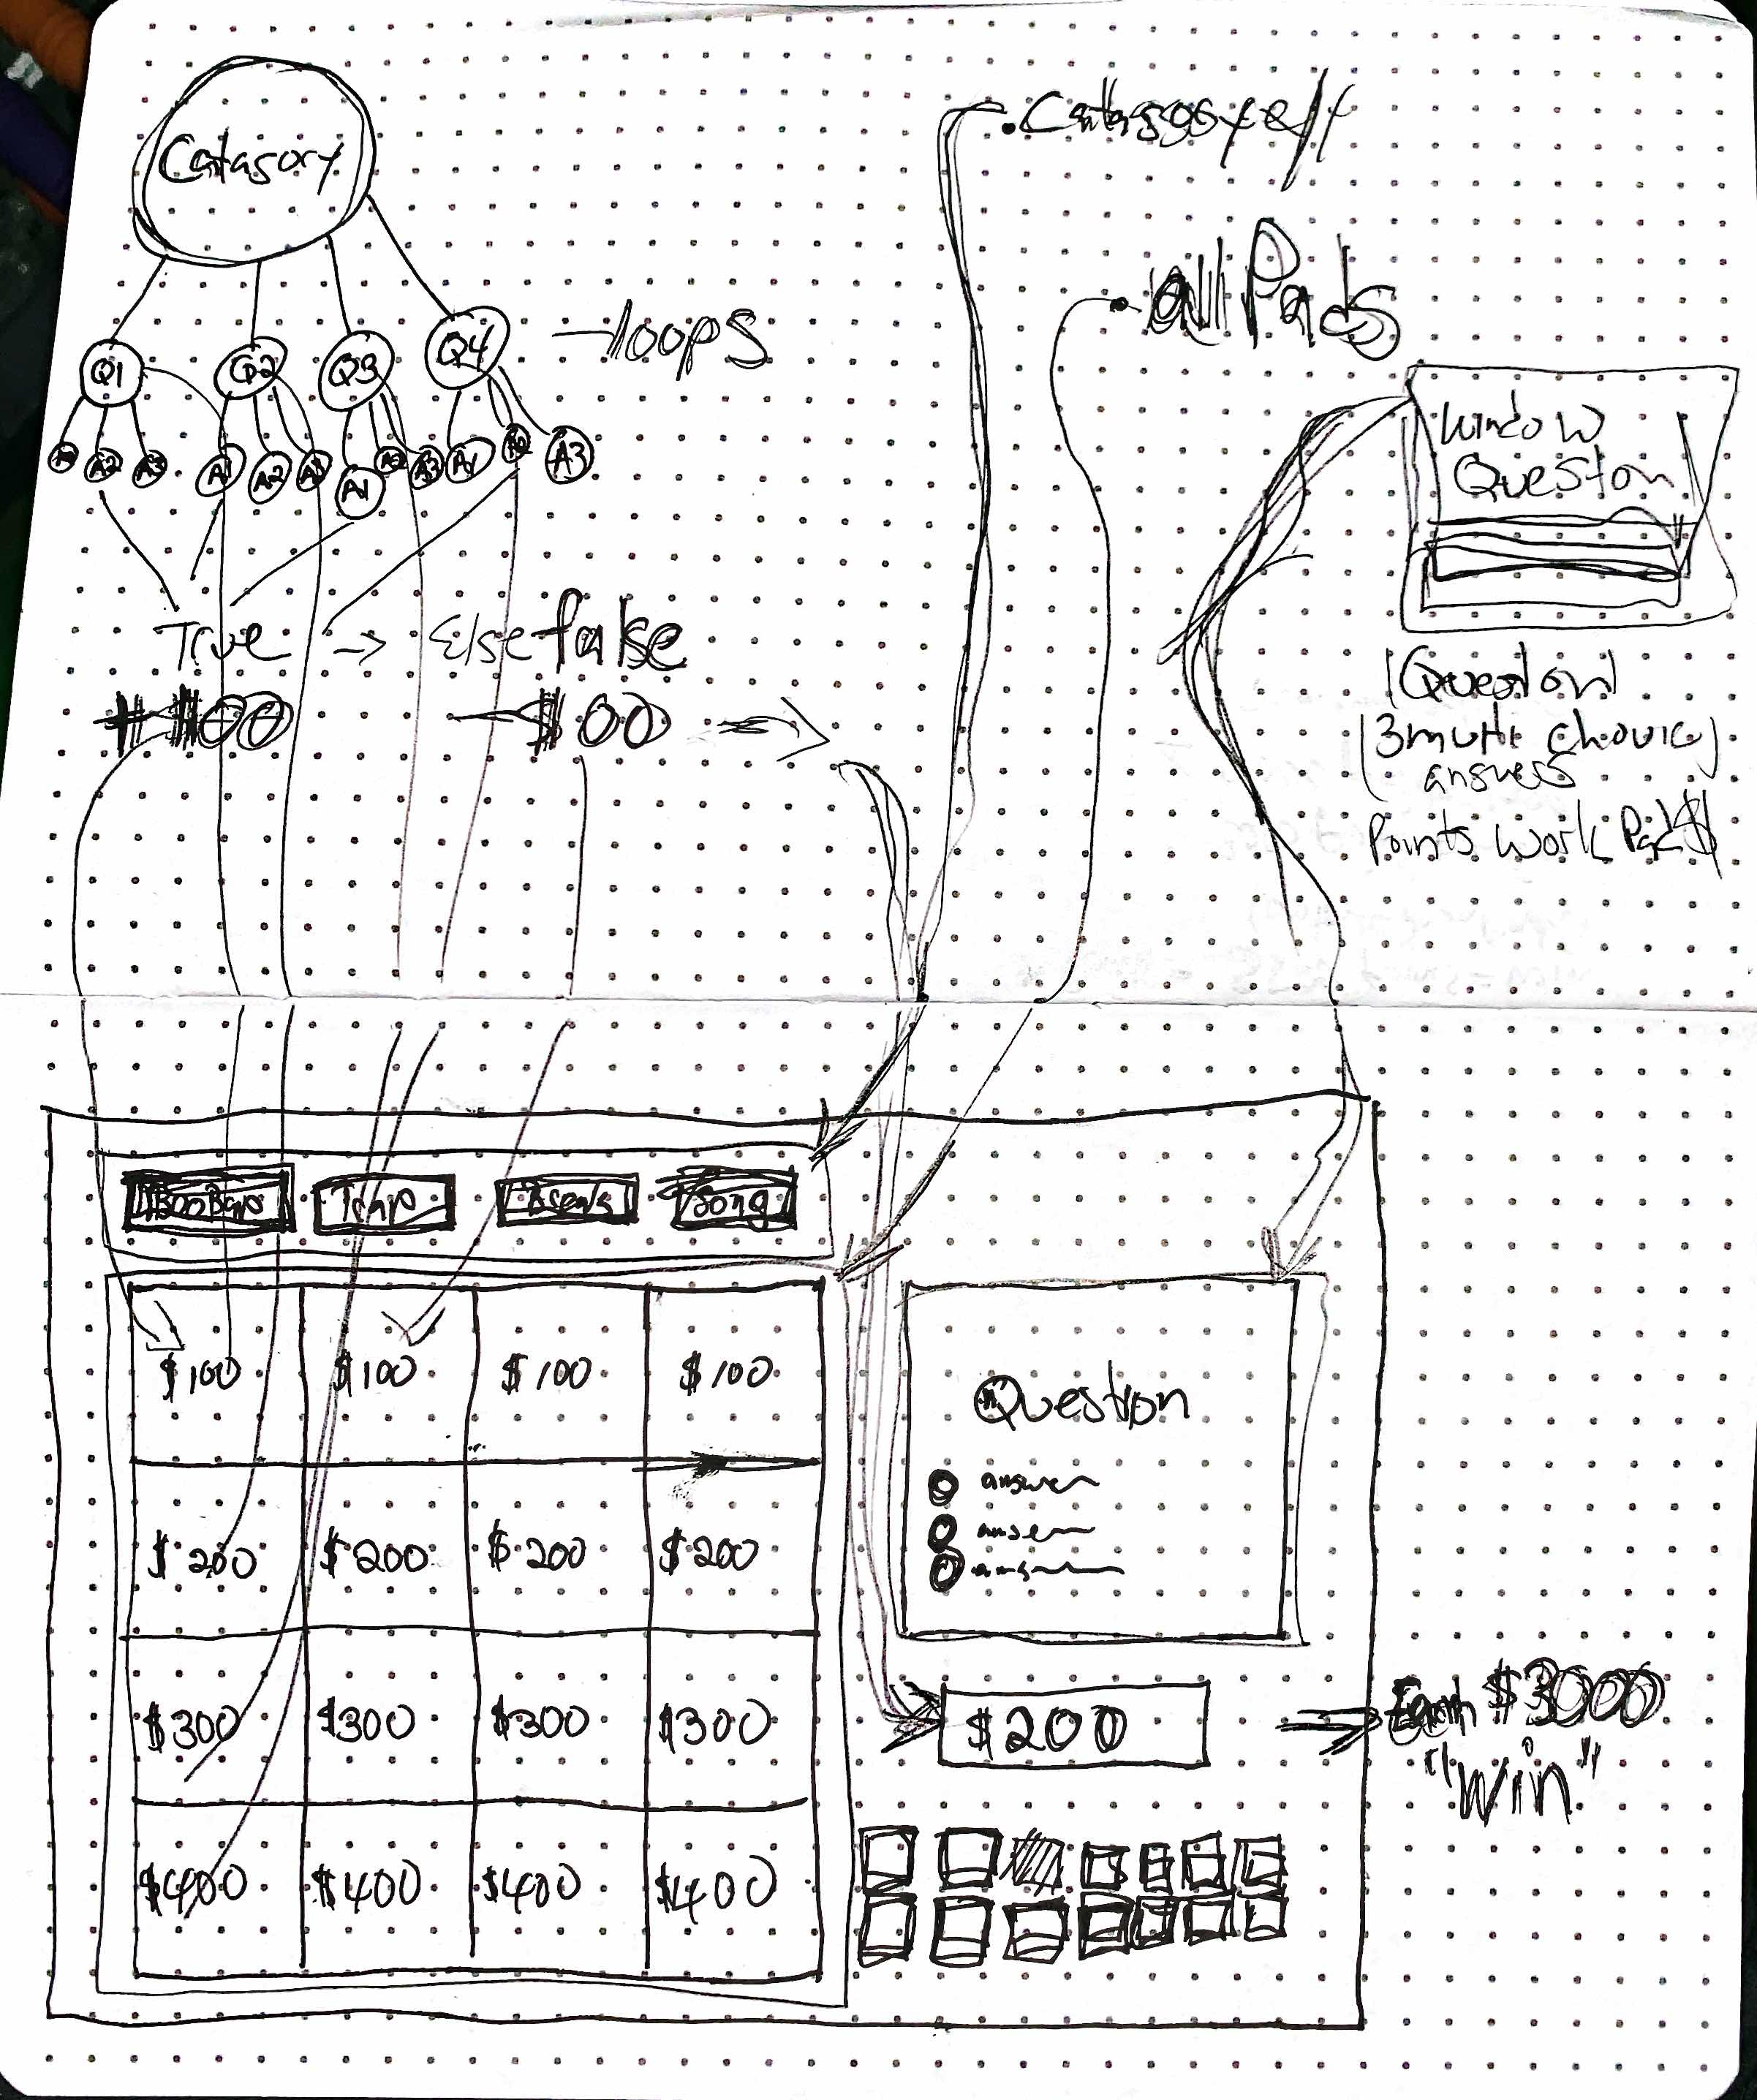 Catagory
Q1 Q2 Q3 Q4 - loops
A2 A3 A1 A2 A3 A1 A2 A3 A1 A2 A3
True -> Else false
$00 -$00
All Pads
Window
Question
Question
3 multi choice
answers
Points work
Trap Song
$100 $100 $100 $100
$200 $200 $200 $200
$300 $300 $300 $300
$400 $400 $400 $400
Question
answer
$200
Earn $3000
"Win"